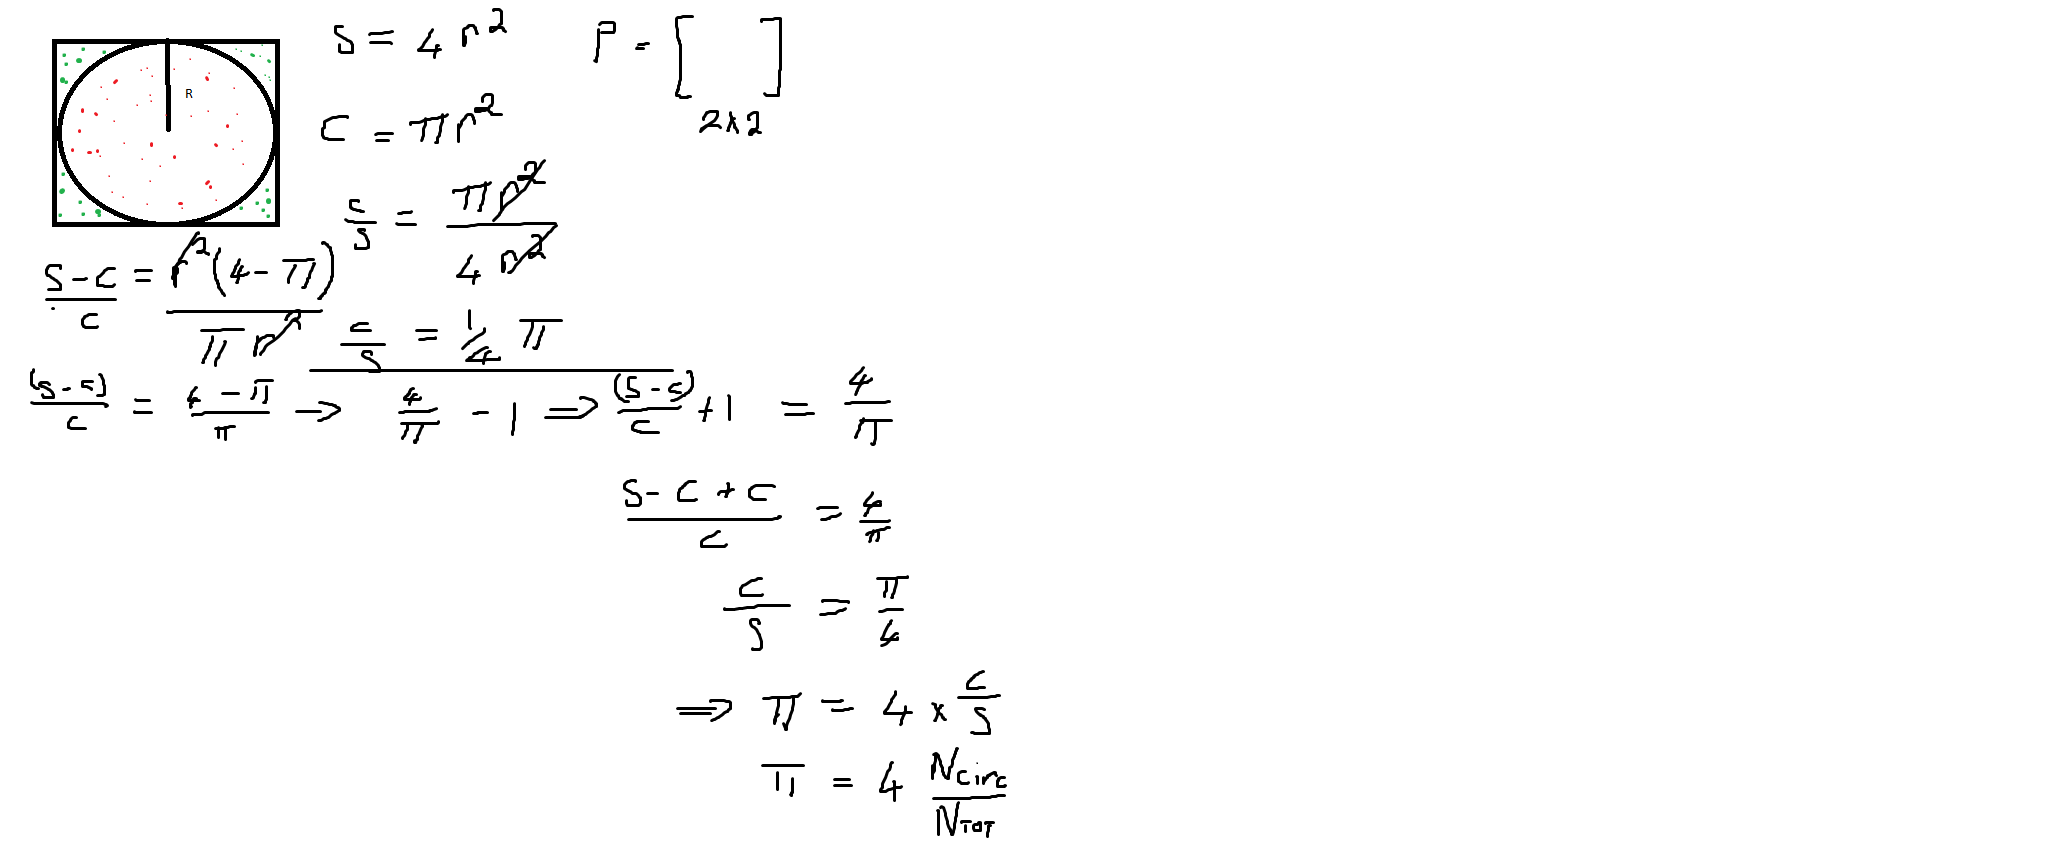 R
S = 4 r²
P = [ ] 2x2
C = πr²
c/s = πr²/4r²
S-C/C = r²(4-π)/πr²
c/s = 1/4 π
(s-s)/c = 4-π/π → 4/π - 1 ⇒ (S-s)/C + 1 = 4/π
S-C+C/C = 4/π
C/S = π/4
⇒ π = 4 x C/S
π = 4 Ncirc/NTOT